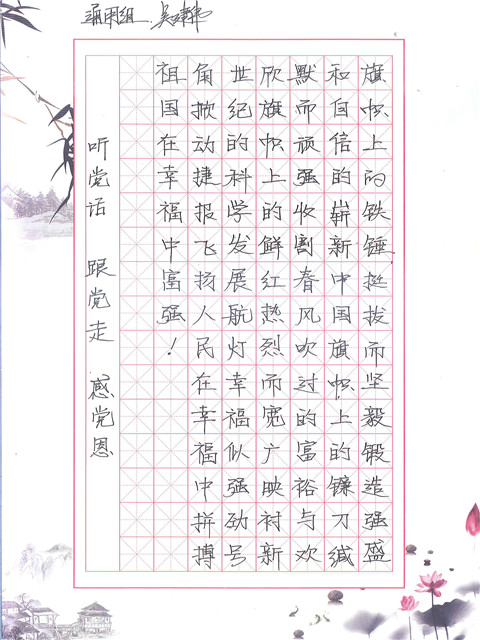 通用组
旗帜上的铁锤挺拔而坚毅锻造强盛
和自信的崭新中国旗帜上的镰刀缄
默而顽强收割春风吹过的富裕与欢
欣旗帜上的鲜红热烈而宽广映衬新
世纪的科学发展航灯幸福似强劲号
角掀动捷报飞扬人民在幸福中拼搏
祖国在幸福中富强！
听党话 跟党走 感党恩